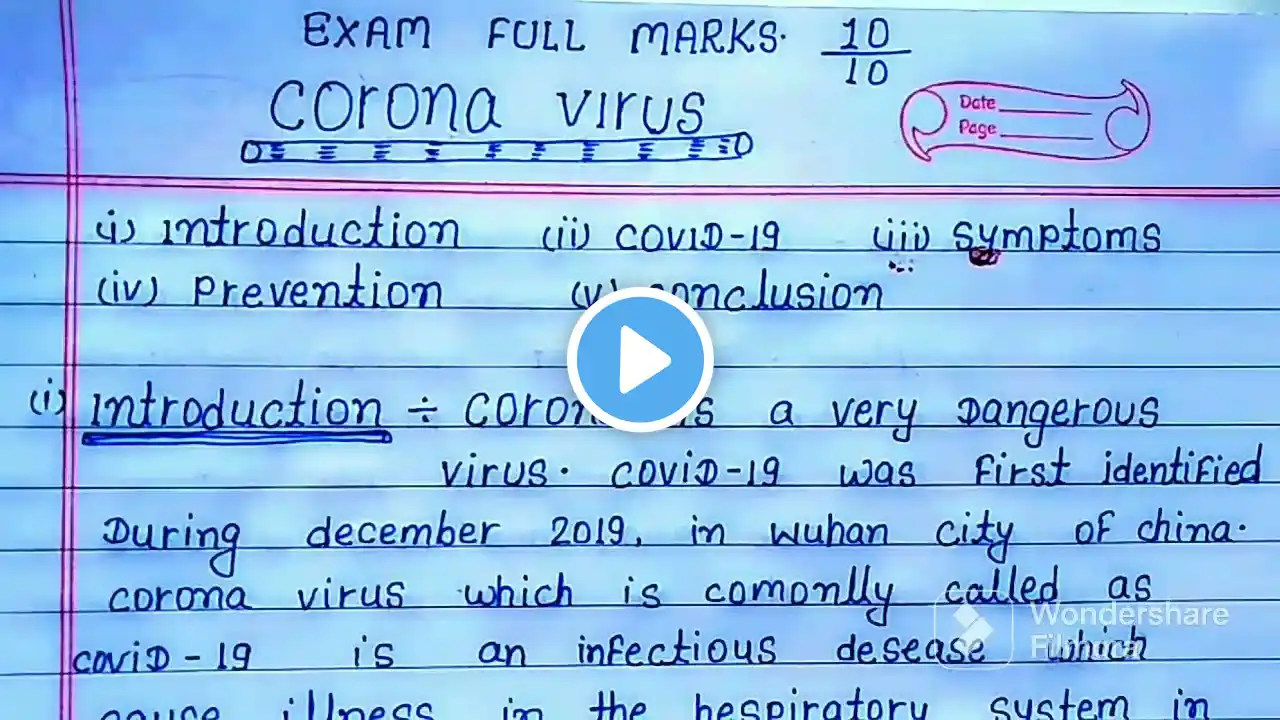 EXAM FULL MARKS. 10/10
corona virus
Date
Page
(i) introduction (ii) covid-19 (iii) symptoms
(iv) prevention (v) conclusion
(i) introduction ÷ corona is a very Dangerous
virus. covid-19 was first identified
During december 2019, in wuhan city of china.
corona virus which is comonlly called as
covid-19 is an infectious desease which
cause illness in the respiratory system in
Wondershare
Filmora